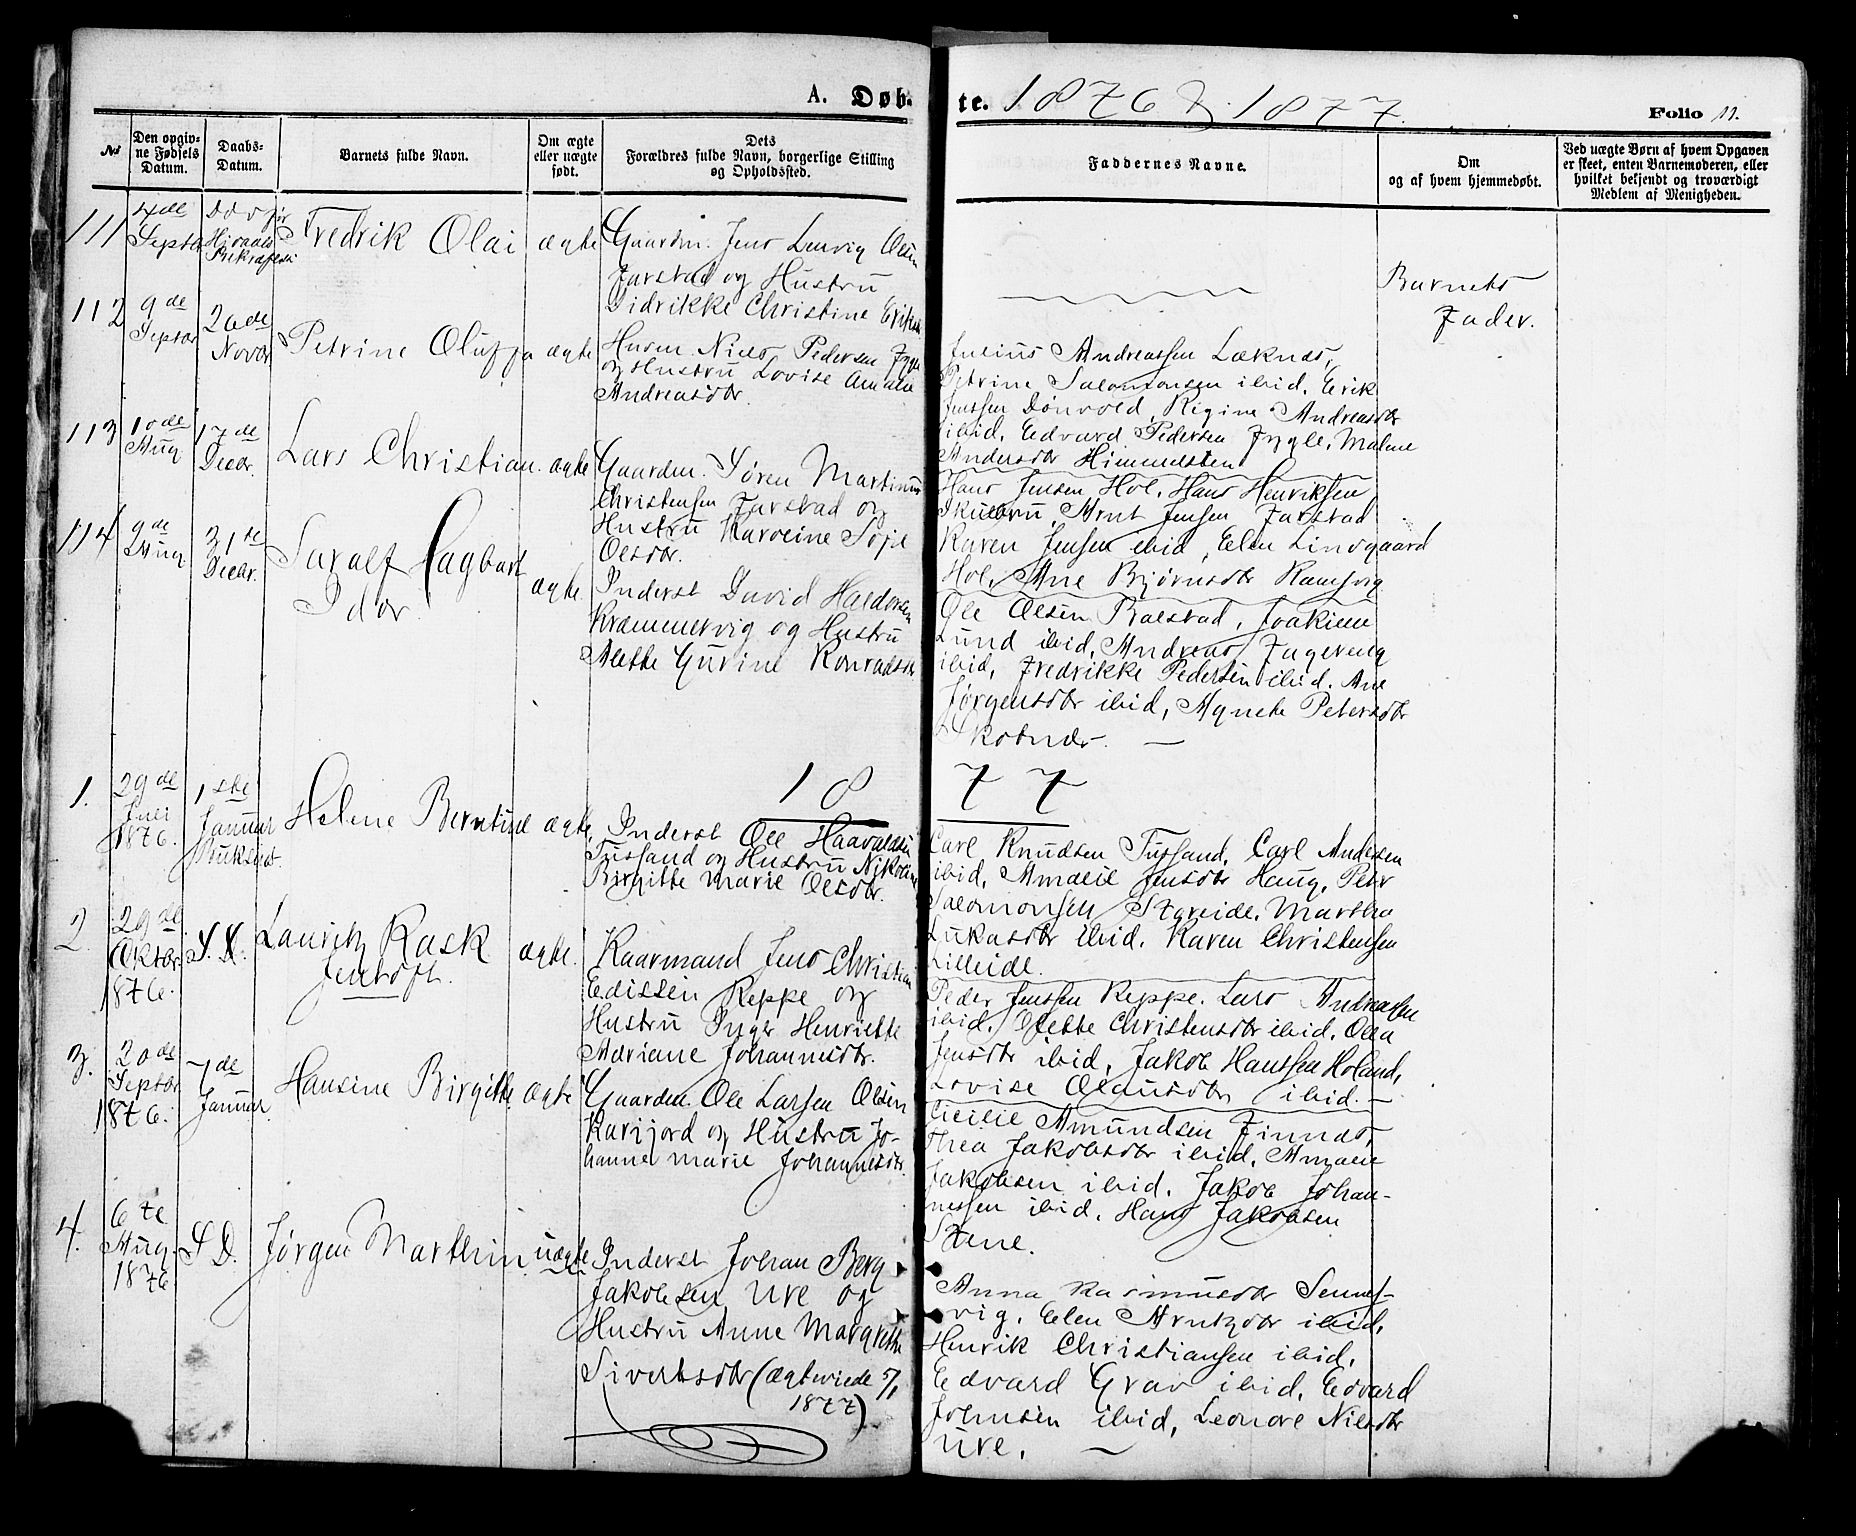 A. Døb-
te. 1876 & 1877.
Folio 11.
No
Den opgiv-
ne Fødsels
Datum.
Daabs-
Datum.
Barnets fulde Navn.
Om ægte
eller uægte
født.
Dets
Forældres fulde Navn, borgerlige Stilling
og Opholdssted.
Faddernes Navne.
Om
og af hvem hjemmedøbt.
Ved uægte Børn af hvem Opgaven
er skeet, enten Barnemoderen, eller
hvilket bekjendt og troværdigt
Medlem af Menigheden.
111
4de
Septbr
Død før
Hjdaabs
Fredrik Olai
ægte
Gaardm. Jens Lenvig Olsen
Farstad og Hustru
Didrikke Christine
Barnets
Fader.
112
9de
Septbr
26de
Novbr
Petrine Oluffa
ægte
Husm. Niels Pedersen Fygle
og Hustru Lovise Amalie
Andreasdtr.
Julius Andreassen Læknes,
Petrine Salomonsen ibid. Erik
Jenssen Dønvold, Regine Andreasdtr
ibid, Edvard Pedersen Fygle, Malene
Andersdtr Himmelsten
113
10de
Aug
17de
Decbr.
Lars Christian
ægte
Gaardm. Søren Martinus
Christensen Farstad og
Hustru Karoline Sofie
Olsdtr.
Hans Jensen Hol. Hans Henriksen
Skulbru Arnt Jensen Farstad
Karen Jensen ibid, Elen Lindgaard
Hol, Ane Bjørnsdtr Ramsvig
114
9de
Aug
31te
Decbr.
Saralf Dagbart
Idar
ægte
Inderst David Haldorsen
Kræmmervig og Hustru
Alette Gurine Konradsdtr
Ole Olsen Balstad, Joakim
Lund ibid, Andreas Fagervig
ibid, Fredrikke Pedersen ibid. Ane
Jørgensdtr ibid, Agnete Petersdtr
Skotnes.
1877
1.
29de
Juli
1876.
1ste
Januar
Buksnæs.
Helene Berntine
ægte
Inderst Ole Haavaldsen
Tussand og Hustru Nikoline
Birgitte Marie Olsdtr.
Carl Knudsen Tussand, Carl Andersen
ibid, Amalie Jensdtr Haug, Petr
Salomonsen Skreide, Martha
Lukasdtr ibid. Karen Christensen
Lilleide.
2.
29de
Oktbr.
1876.
S.D.
Lauritz Rask
Jentoft.
ægte.
Kaarmand Jens Christian
Edissen Reppe og
Hustru Inger Henriette
Adriane Johannesdtr.
Peder Jenssen Reppe. Lars Andreassen
ibid. Olette Christensdtr ibid. Olea
Jensdtr ibid, Jakob Hanssen Holand,
Lovise Olausdtr ibid.
3.
20de
Septbr
1876.
7de
Januar
Hansine Birgitte
ægte
Gaardm. Ole Larsen Olsen
Karijord og Hustru Jo-
hanne Marie Johannesdtr.
Cicilie Amundsen Finnes,
Thea Jakobsdtr ibid, Amalie
Jakobsen ibid. Jakob Johan-
nessen ibid. Hans Jakobsen
Stene.
4.
6te
Aug.
1876
S D.
Jørgen Marthin
uægte
Inderst Johan Berg
Jakobsen Ure og
Hustru Anne Margrethe
Sivertsdtr (ægteviede 5/1
1877).
Anna Rasmusdtr Sennes-
vig, Elen Arntzdtr ibid,
Henrik Christiansen ibid,
Edvard Grav ibid, Edvard
Johnsen ibid, Leonore Nilsdtr
Ure,